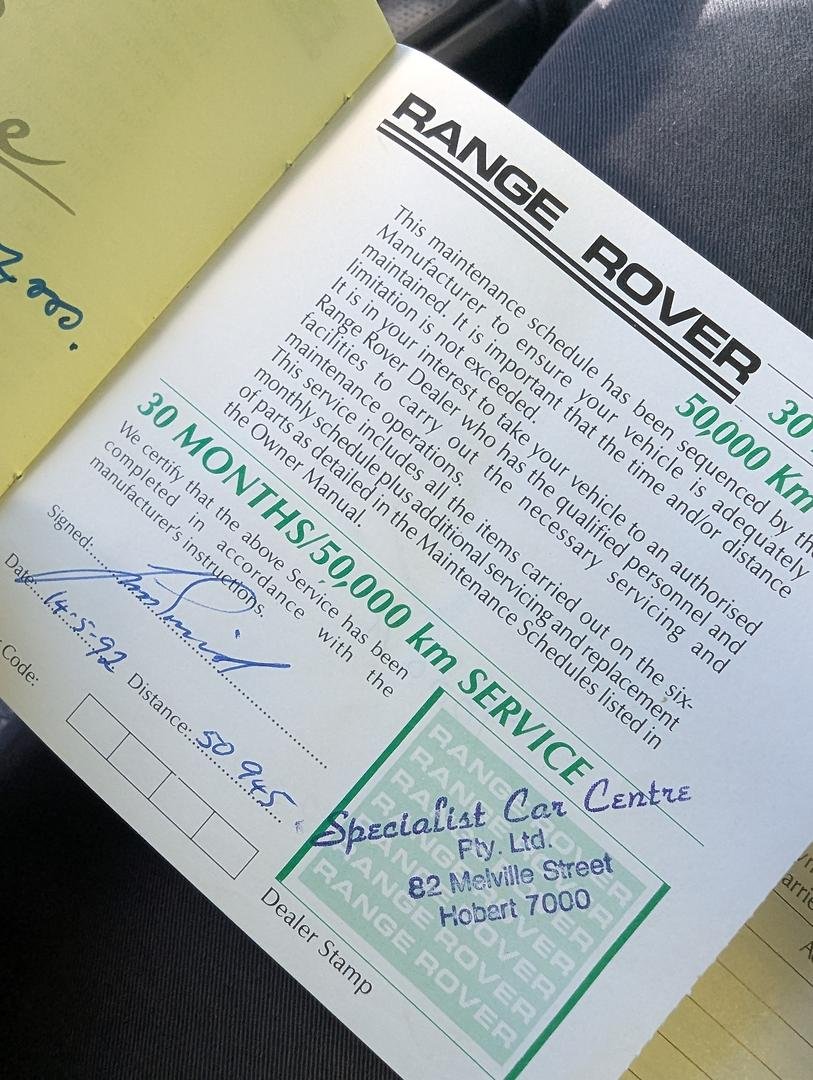 RANGE ROVER
50,000 Km
This maintenance schedule has been sequenced by the
Manufacturer to ensure your vehicle is adequately
maintained. It is important that the time and/or distance
limitation is not exceeded.
It is in your interest to take your vehicle to an authorised
Range Rover Dealer who has the qualified personnel and
facilities to carry out the necessary servicing and
maintenance operations.
This service includes all the items carried out on the six-
monthly schedule plus additional servicing and replacement
of parts as detailed in the Maintenance Schedules listed in
the Owner Manual.
30 MONTHS/50,000 km SERVICE
We certify that the above Service has been
completed in accordance with the
manufacturer's instructions.
Signed:
Date: 14-5-92
Distance: 50 945
Code:
Specialist Car Centre
Pty. Ltd.
82 Melville Street
Hobart 7000
RANGE ROVER
RANGE ROVER
RANGE ROVER
RANGE ROVER
RANGE ROVER
Dealer Stamp